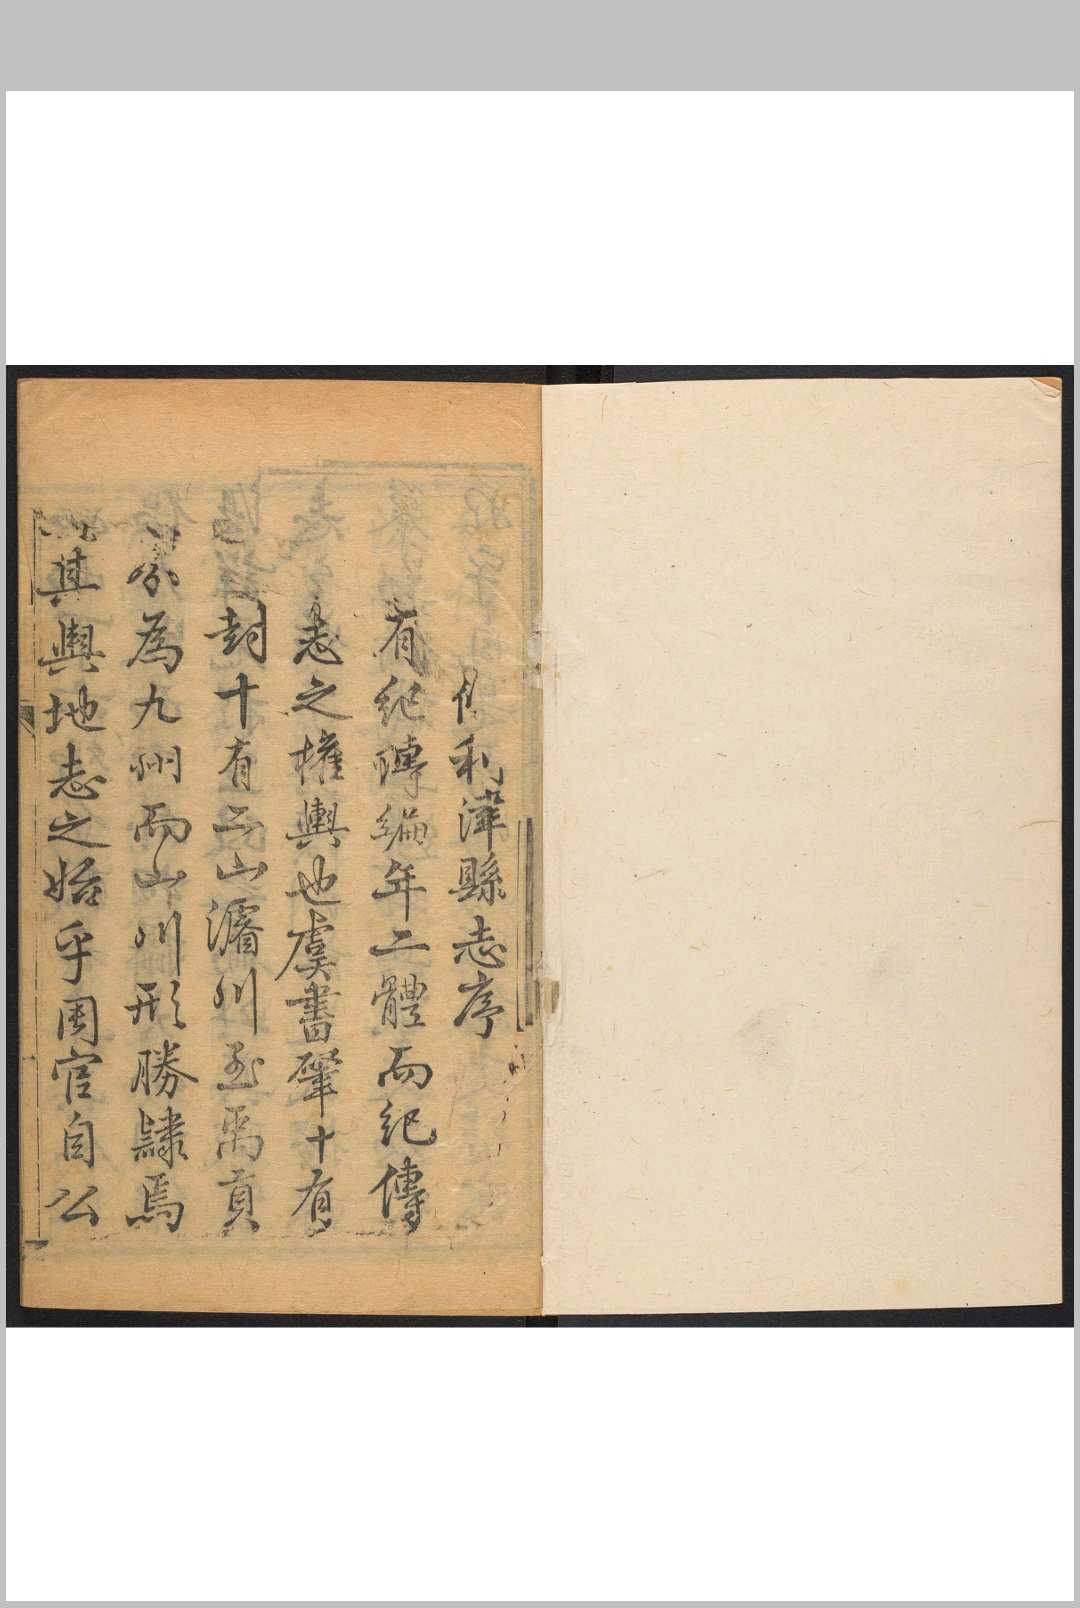 利津縣志序
有紀傳編年二體而紀傳
志之權輿也虞書肇十有
封十有二山濬川至禹貢
分為九州而山川形勝隸焉
其輿地志之始乎周官自公